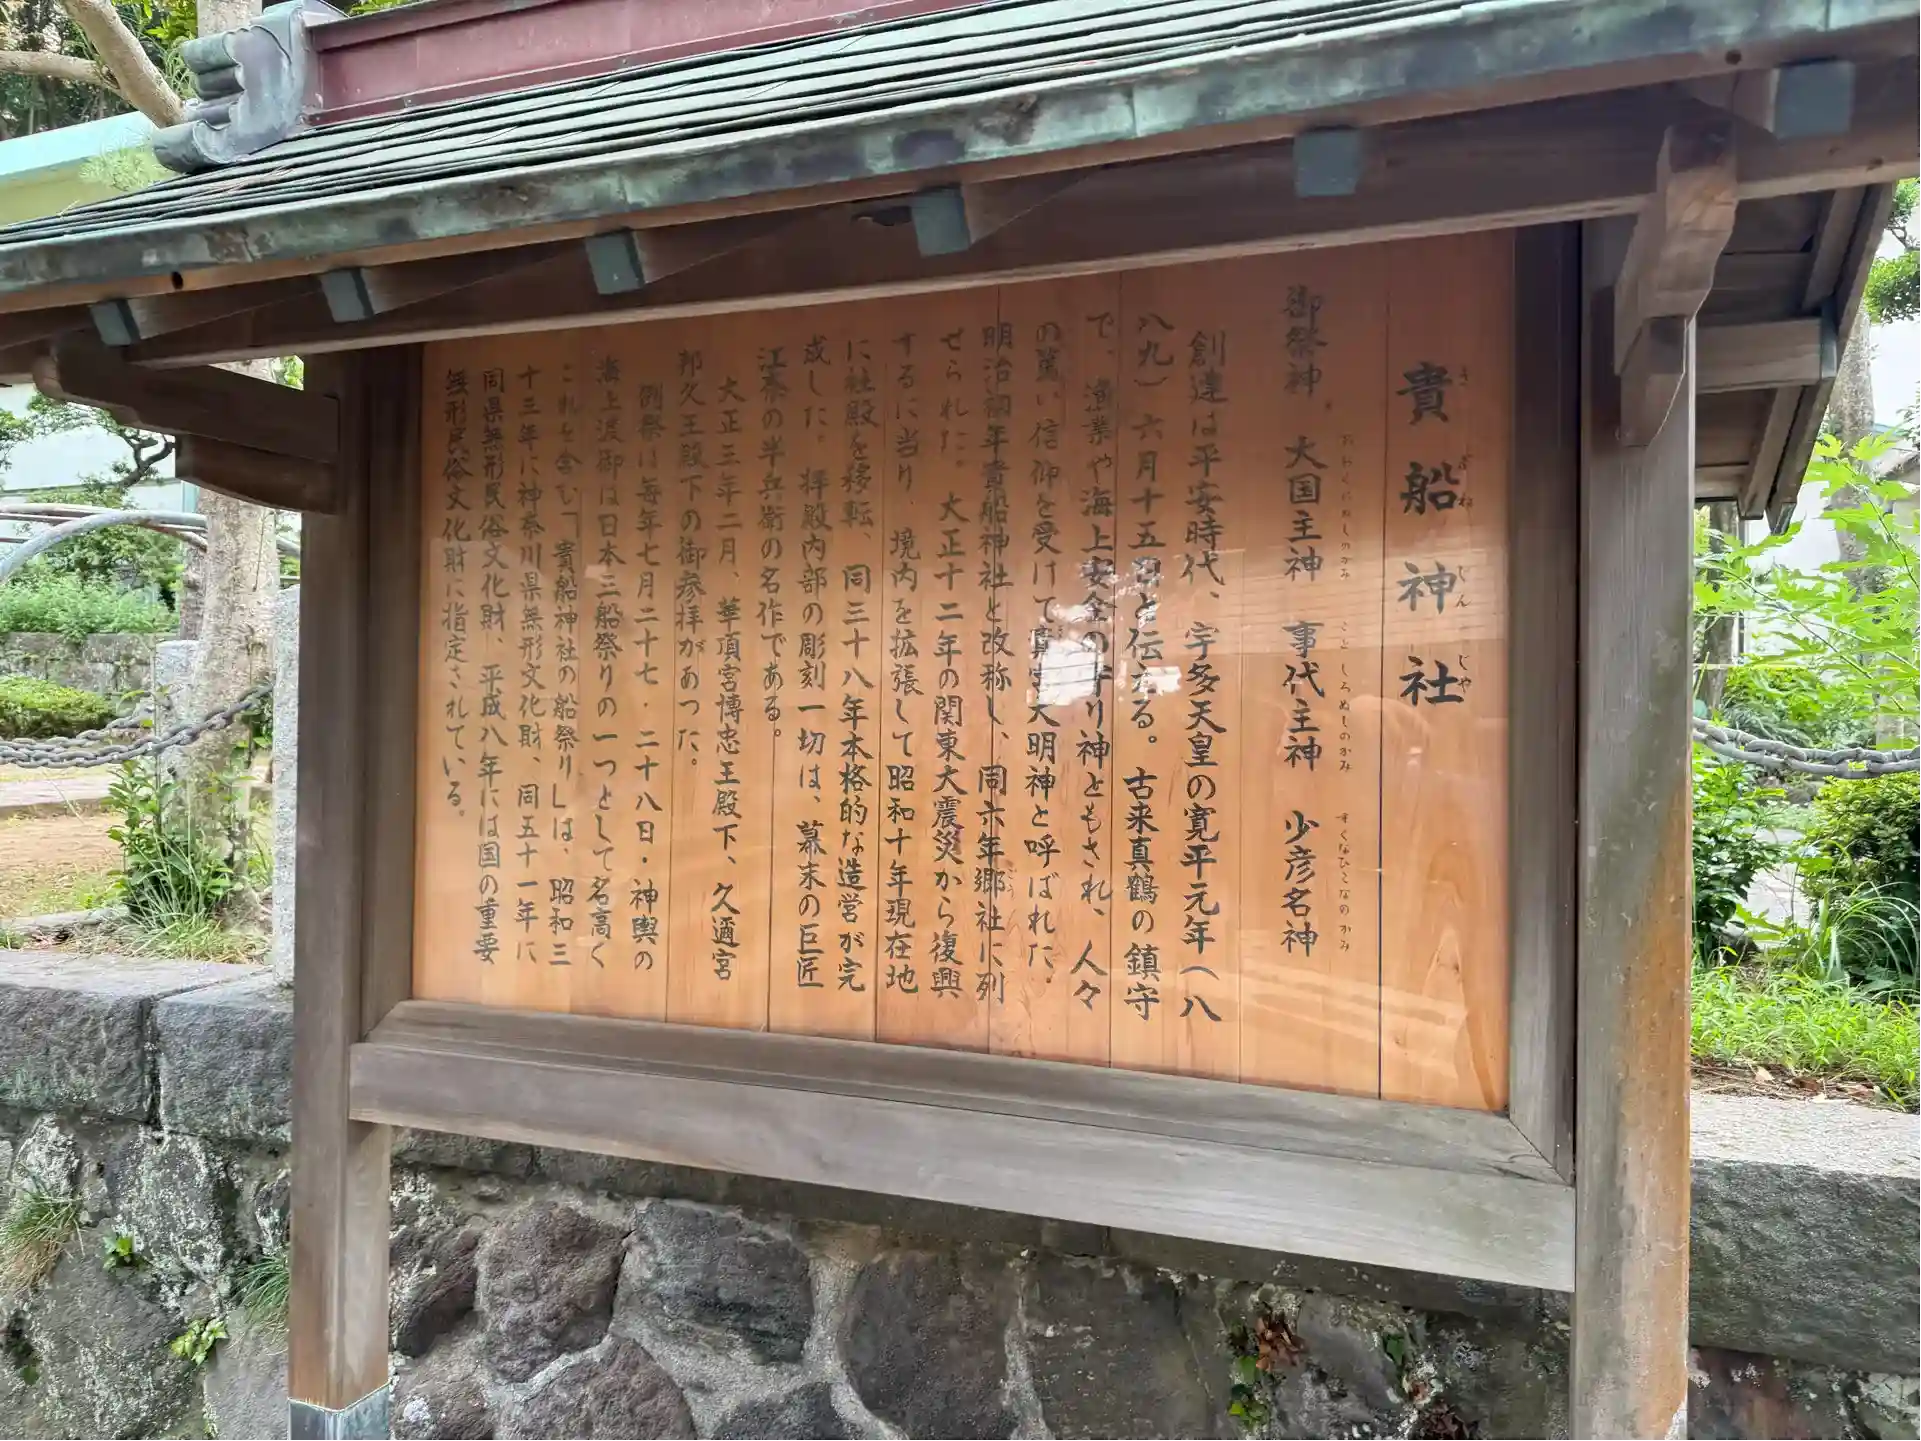 貴船神社
きぶねじんじゃ
御祭神、大国主神 事代主神 少彦名神
おおくにぬしのかみ ことしろぬしのかみ すくなひこなのかみ
創建は平安時代、宇多天皇の寛平元年(八
八九)六月十五日と伝える。古来真鶴の鎮守
で、漁業や海上安全の守り神ともされ、人々
の篤い信仰を受けて貴宮大明神と呼ばれた。
明治初年貴船神社と改称し、同六年郷社に列
せられた。大正十二年の関東大震災から復興
するに当り、境内を拡張して昭和十年現在地
に社殿を移転、同三十八年本格的な造営が完
成した。拝殿内部の彫刻一切は、幕末の巨匠
江奈の半兵衛の名作である。
大正三年二月、華頂宮博忠王殿下、久邇宮
邦久王殿下の御参拝があった。
例祭は毎年七月二十七・二十八日・神輿の
海上渡御は日本三船祭りの一つとして名高く
これを含む「貴船神社の船祭り」は、昭和三
十三年に神奈川県無形文化財、同五十一年に
同県無形民俗文化財、平成八年には国の重要
無形民俗文化財に指定されている。